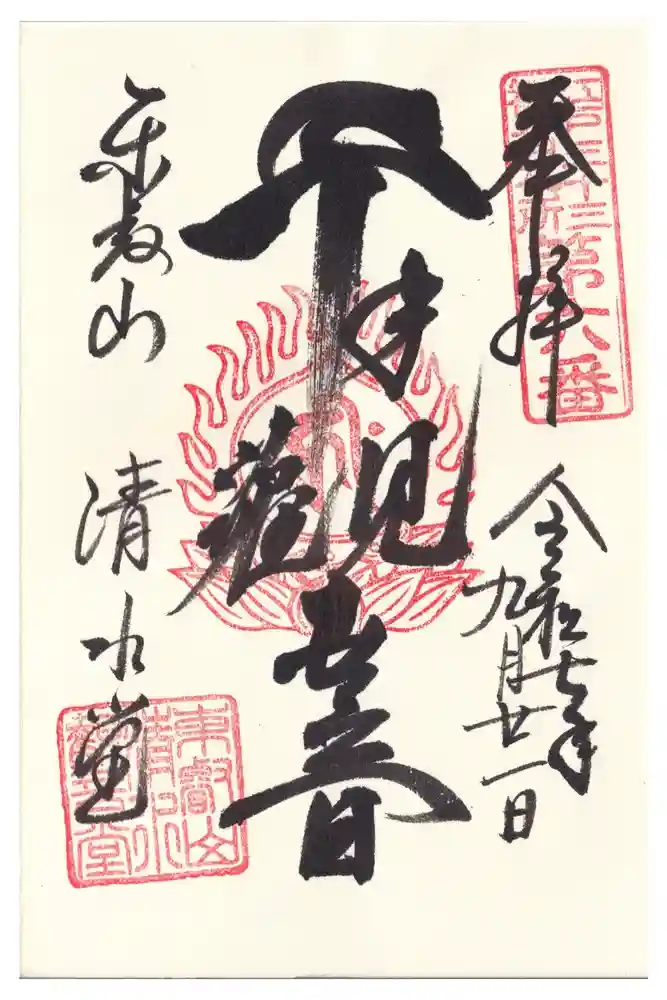 奉拝
第六番
令和七年
九月廿一日
千手觀世音
東叡山 清水堂
東叡山